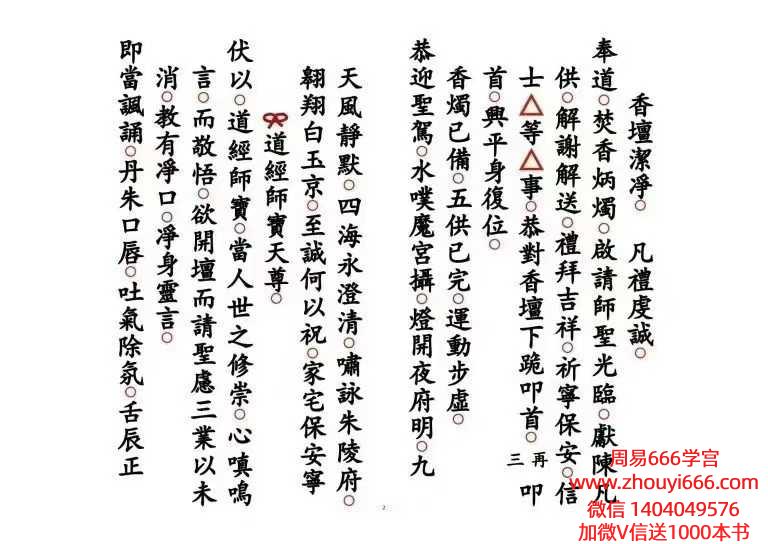 香壇潔凈。凡禮虔誠。
奉道。焚香炳燭。啟請師聖光臨。獻陳凡
供。解謝解送。禮拜吉祥。祈寧保安。信
士△等△事。恭對香壇下跪叩首。再三叩
首。興平身復位。
香燭已備。五供已完。運動步虛。
恭迎聖駕。水噗魔宮攝。燈開夜府明。九
天風靜默。四海永澄清。嘯詠朱陵府。
翱翔白玉京。至誠何以祝。家宅保安寧
道經師寶天尊。
伏以。道經師寶。當人世之修崇。心嗔鳴
言。而敬悟。欲開壇而請聖慮三業以未
消。教有凈口。凈身靈言。
即當諷誦。丹朱口唇。吐氣除氛。舌辰正
2
周易666学宫
www.zhouyi666.com
微信 1404049576
加微V信送1000本书